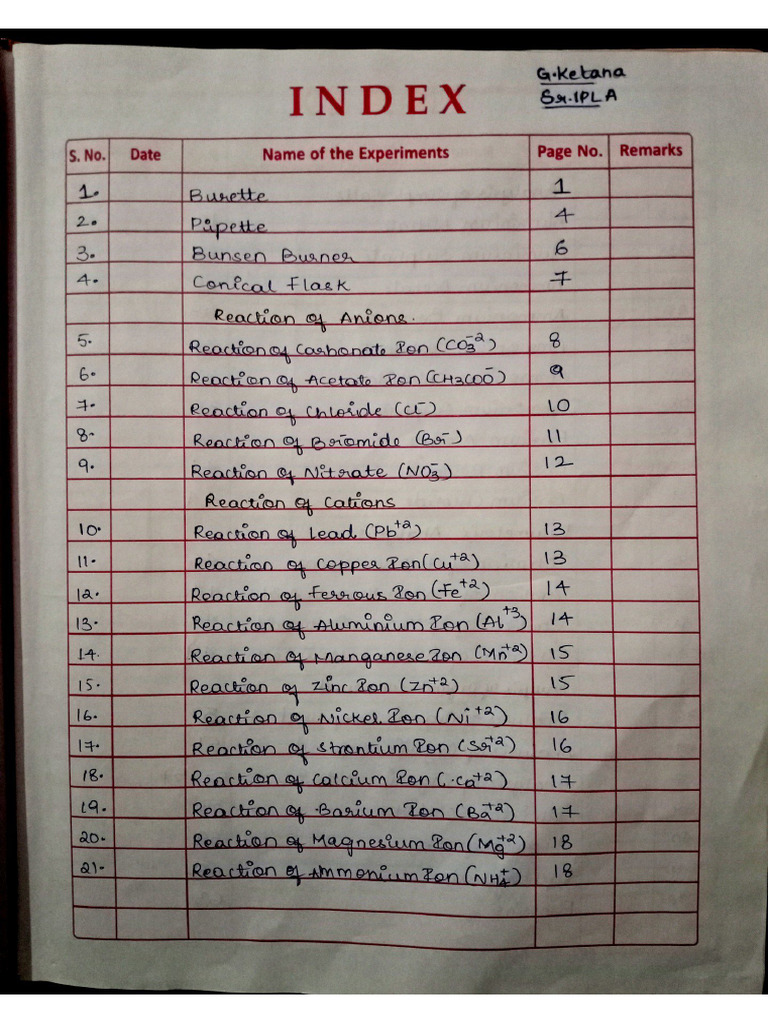 G.Ketana
Sr.IPL A
INDEX
S. No. Date Name of the Experiments Page No. Remarks
1. Burette 1
2. Pipette 4
3. Bunsen Burner 6
4. Conical Flask 7
Reaction of Anions.
5. Reaction of Carbonate Ion (CO₃⁻²) 8
6. Reaction of Acetate Ion (CH3COO⁻) 9
7. Reaction of Chloride (Cl⁻) 10
8. Reaction of Bromide (Br⁻) 11
9. Reaction of Nitrate (NO₃⁻) 12
Reaction of Cations
10. Reaction of Lead (Pb⁺²) 13
11. Reaction of Copper Ion (Cu⁺²) 13
12. Reaction of Ferrous Ion (Fe⁺²) 14
13. Reaction of Aluminium Ion (Al⁺³) 14
14. Reaction of Manganese Ion (Mn⁺²) 15
15. Reaction of Zinc Ion (Zn⁺²) 15
16. Reaction of Nickel Ion (Ni⁺²) 16
17. Reaction of Strontium Ion (Sr⁺²) 16
18. Reaction of Calcium Ion (Ca⁺²) 17
19. Reaction of Barium Ion (Ba⁺²) 17
20. Reaction of Magnesium Ion (Mg⁺²) 18
21. Reaction of Ammonium Ion (NH₄⁺) 18